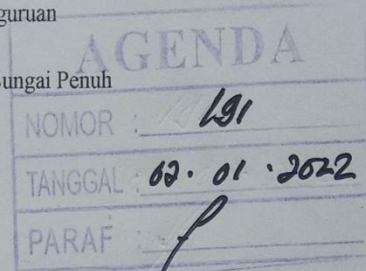 guruan
AGENDA
Sungai Penuh
NOMOR : 191
TANGGAL : 03. 01 . 2022
PARAF :